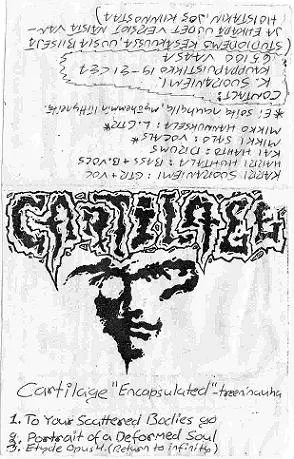 CARTILAGE
Cartilage "Encapsulated" -treeninauha
1. To Your Scattered Bodies go
2. Portrait of a Deformed Soul
3. Etyde Opus 4. (Return to infinity)
HARRI SUORANIEMI: GTR + VOC
HARRI HUHTALA: BASS + B.VOCS
KAI HAHTO: DRUMS
MIKKI SALO: VOCALS*
MIKKO HANNUKSELA: L.GTR*
*Ei soita nauhalla, myöhemmin liittyneitä
CONTACT:
H. SUORANIEMI
KAUPPAPUISTIKKO
65100 VAASA
STUDIODEMO KESÄKUUSSA, UUSIA BIISEJÄ
JA EHKÄPÄ UUDET VERSIOT NÄISTÄ VAN-
HOISTAKIN, JOS KIINNOSTAA